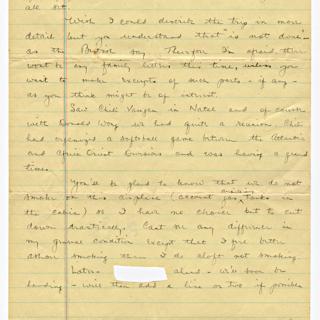 all set.
Wish I could describe the trip in more
detail but you understand that "is not done"
as the British say. Therefore I'm afraid there
wont be any family letters this time, unless you
want to make excerpts of such parts - if any -
as you think might be of interest.
Saw Chili Vaughn in Natal and of course
with Donald Way we had quite a reunion. Chili
had organized a softball game between the Atlantic
and Africa Orient Divisions and was having a grand
time.
You'll be glad to know that we do not
smoke on this airplane (account gas tanks in
the cabin) so I have no choice but to cut
down drastically. Cant see any difference in
my general condition except that I feel better
when smoking than I do aloft not smoking.
Later: ahead - will soon be
landing - will then add a line or two if possible